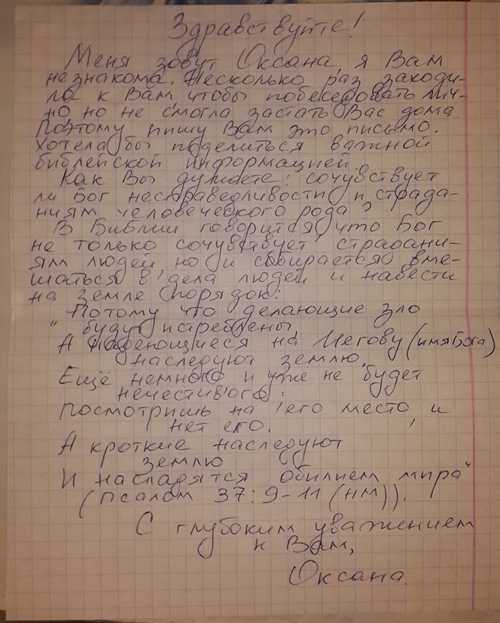 Здравствуйте!
Меня зовут Оксана, я Вам
незнакома. Несколько раз заходи-
ла к Вам, чтобы побеседовать лич-
но, но не смогла застать Вас дома.
Поэтому пишу Вам это письмо.
Хотела бы поделиться важной
библейской информацией.
Как Вы думаете: сочувствует
ли Бог несправедливости и страда-
ниям человеческого рода?
В Библии говорится, что Бог
не только сочувствует страдани-
ям людей, но и собирается вме-
шаться в дела людей и навести
на земле порядок:
"Потому что делающие зло
будут истреблены,
А надеющиеся на Иегову (имя Бога)
наследуют землю.
Ещё немного и уже не будет
нечестивого;
Посмотришь на его место, и
нет его.
А кроткие наследуют
землю
И насладятся обилием мира"
(Псалом 37:9-11 (нм)).
С глубоким уважением
к Вам,
Оксана.